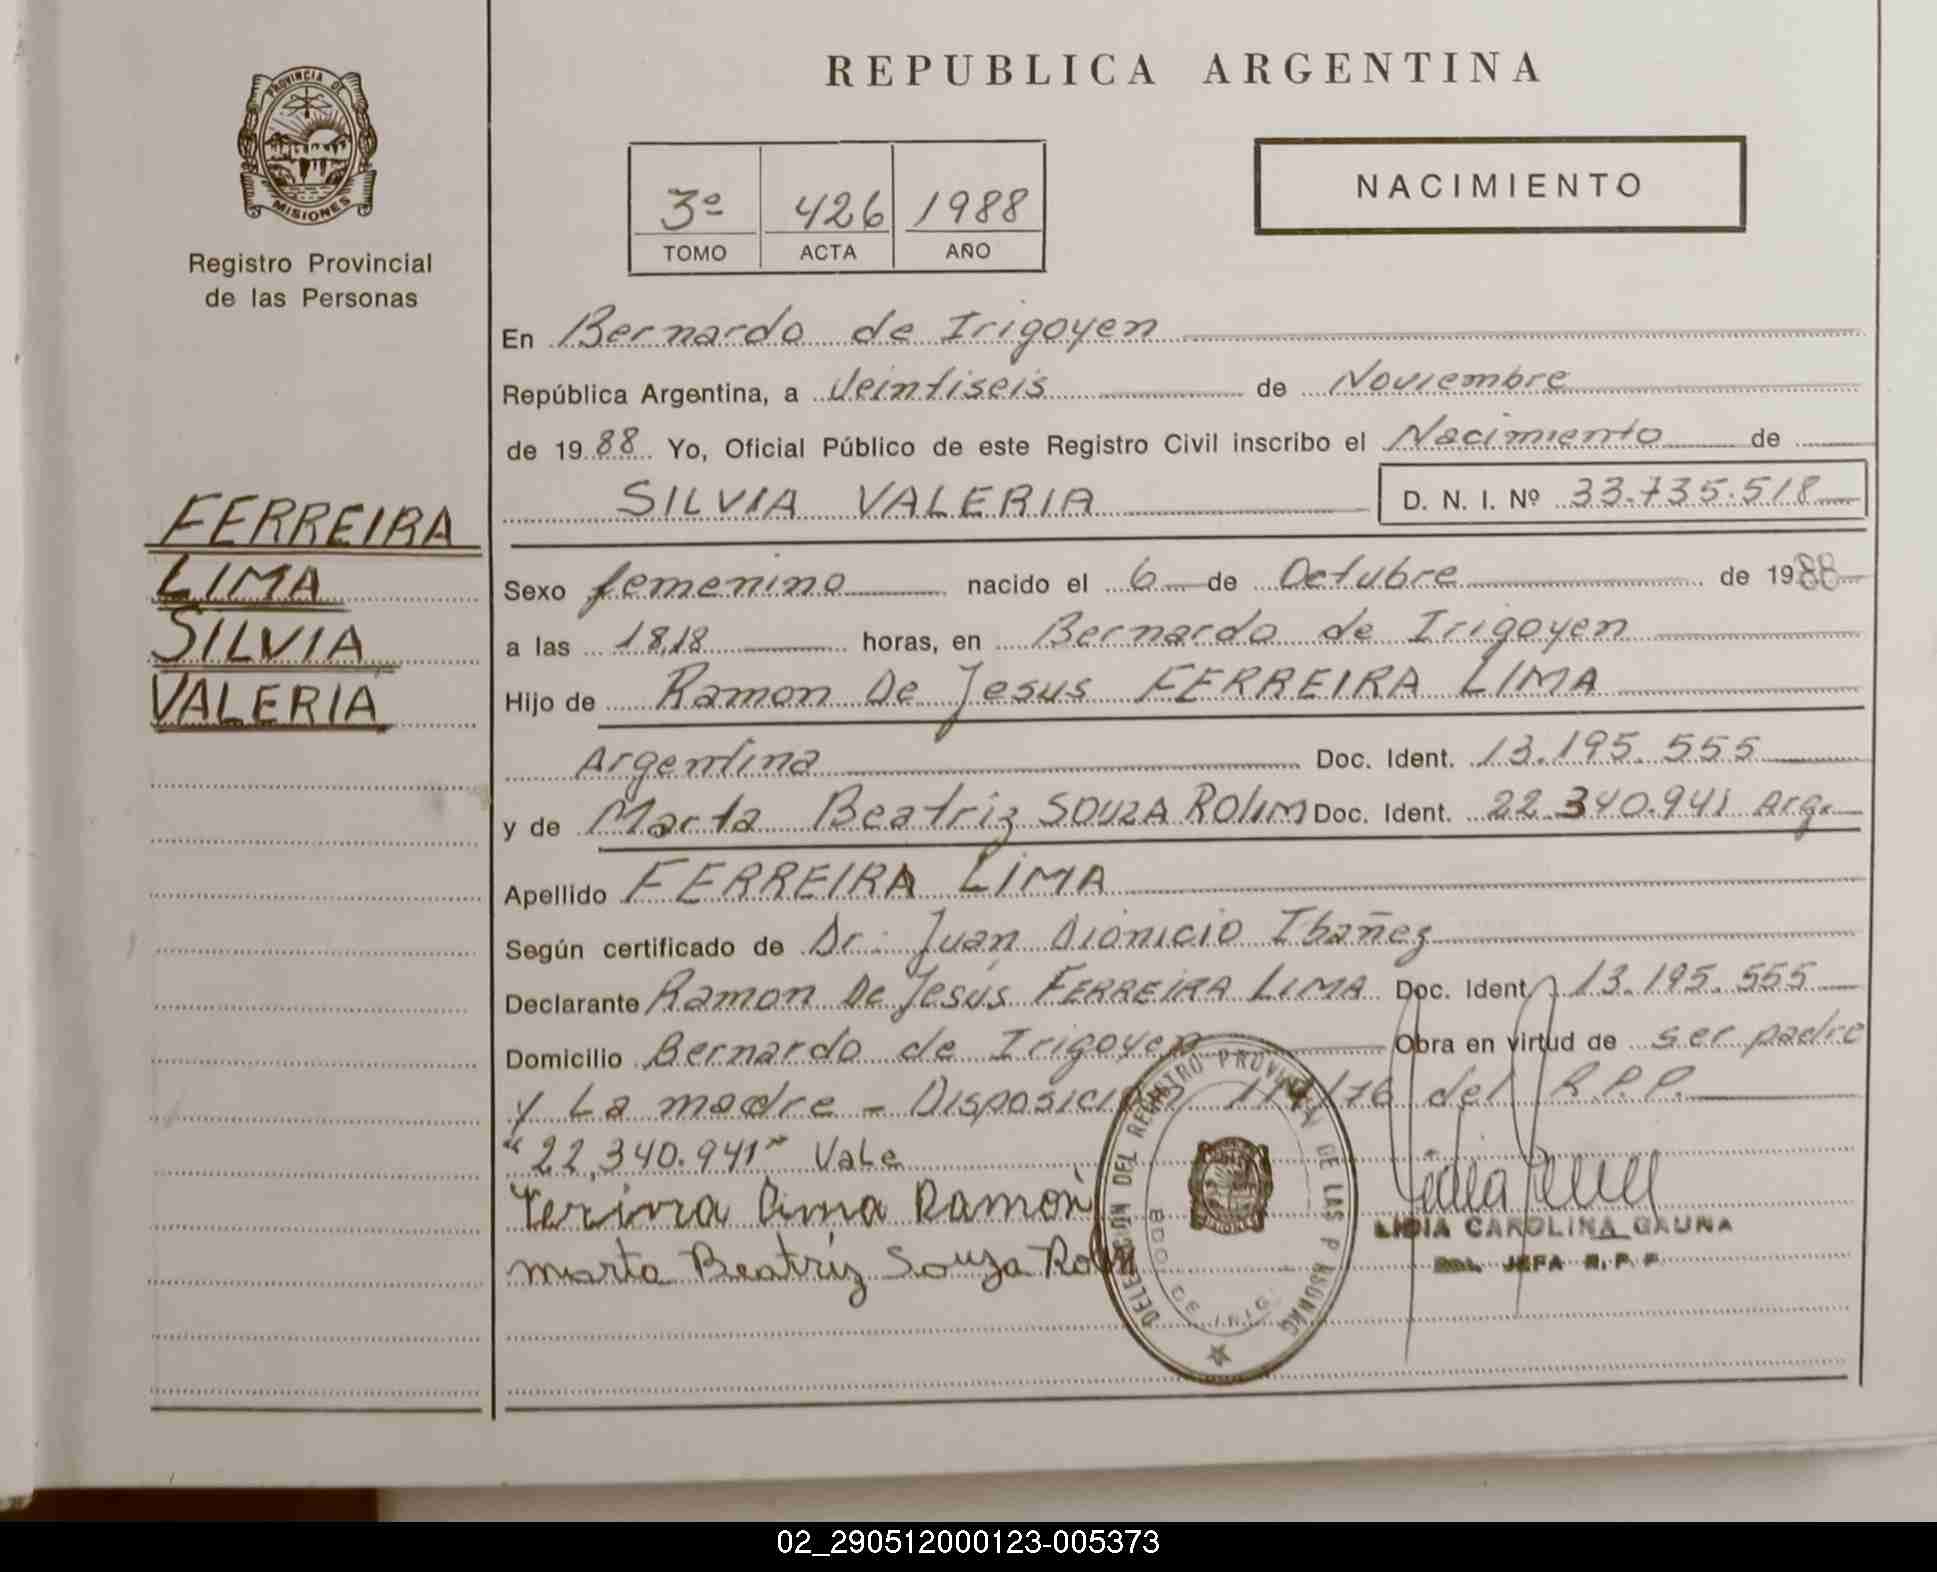 REPUBLICA ARGENTINA
PROVINCIA DE
MISIONES
Registro Provincial
de las Personas
3º 426 1988
TOMO ACTA AÑO
NACIMIENTO
FERREIRA
LIMA
SILVIA
VALERIA
En Bernardo de Irigoyen
República Argentina, a Veintiseis de Noviembre
de 1988 Yo, Oficial Público de este Registro Civil inscribo el Nacimiento de
SILVIA VALERIA D. N. I. Nº 33.735.518
Sexo femenino nacido el 6 de Octubre de 1988
a las 18,18 horas, en Bernardo de Irigoyen
Hijo de Ramon De Jesus FERREIRA LIMA
Argentina Doc. Ident. 13.195.555
y de Marta Beatriz SOUZA ROLIM Doc. Ident. 22.340.941 Arg.
Apellido FERREIRA LIMA
Según certificado de Dr: Juan Dionicio Ibañez
Declarante Ramon De Jesús FERREIRA LIMA Doc. Ident. 13.195.555
Domicilio Bernardo de Irigoyen Obra en virtud de ser padre
y La madre - Disposición 114/76 del R.P.P.
"22,340.941" Vale
Lima Ramon
marta Beatriz Souza
DELEGACIÓN DEL REGISTRO PROVINCIAL DE LAS P
BDO. DE IRIG.
LIDIA CAROLINA GAUNA
JEFA R. P. P.
02_290512000123-005373